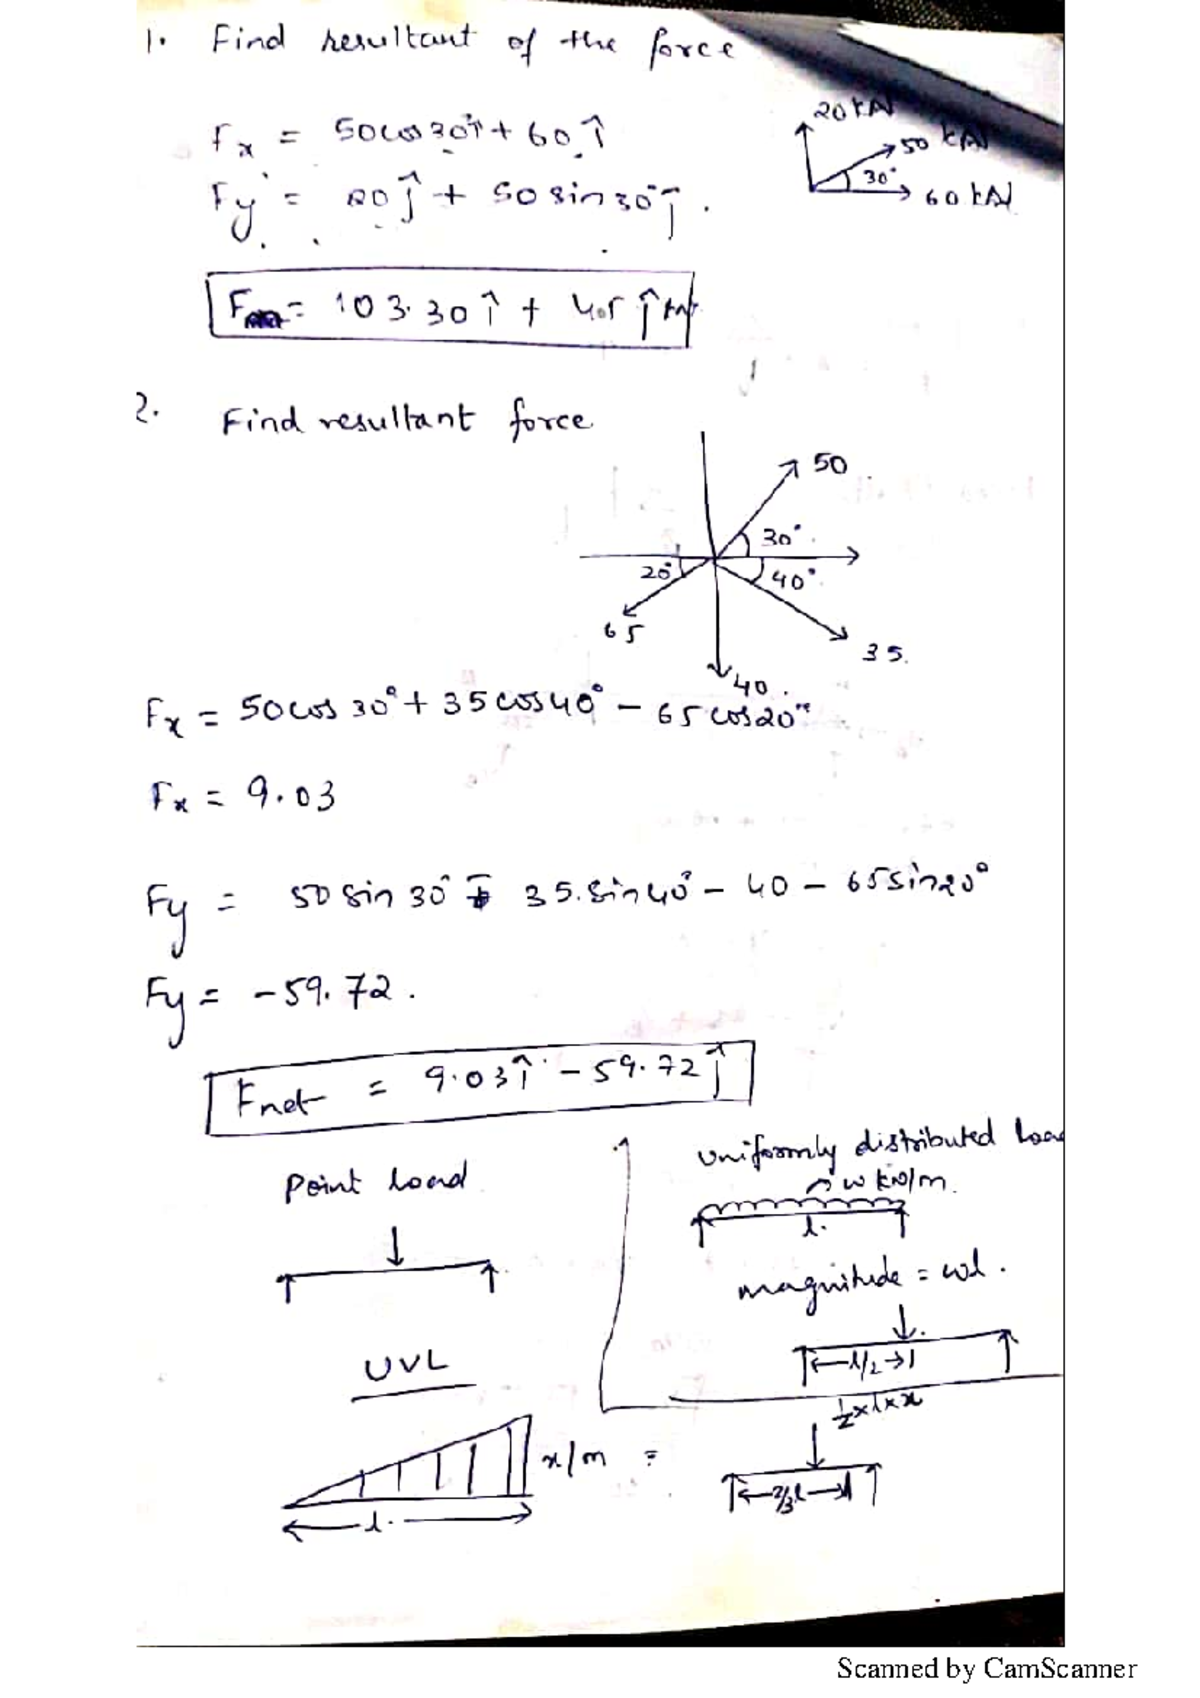 1. Find resultant of the force
Fx = 50cos30î + 60î
20 kN
50 kN
30°
60 kN
Fy = 20ĵ + 50sin30°ĵ.
F = 103.30î + 45ĵ kN
2. Find resultant force
50
30°
20°
40°
65
35.
40.
Fx = 50cos30° + 35cos40° – 65cos20°
Fx = 9.03
Fy = 50sin30° – 35.sin40° – 40 – 65sin20°
Fy = -59.72.
Fnet = 9.03î – 59.72ĵ
Point load
uniformly distributed Loa
w kN/m.
l.
magnitude = wl.
l/2
UVL
x/m =
l.
1/2 x l x x
2/3 l
Scanned by CamScanner